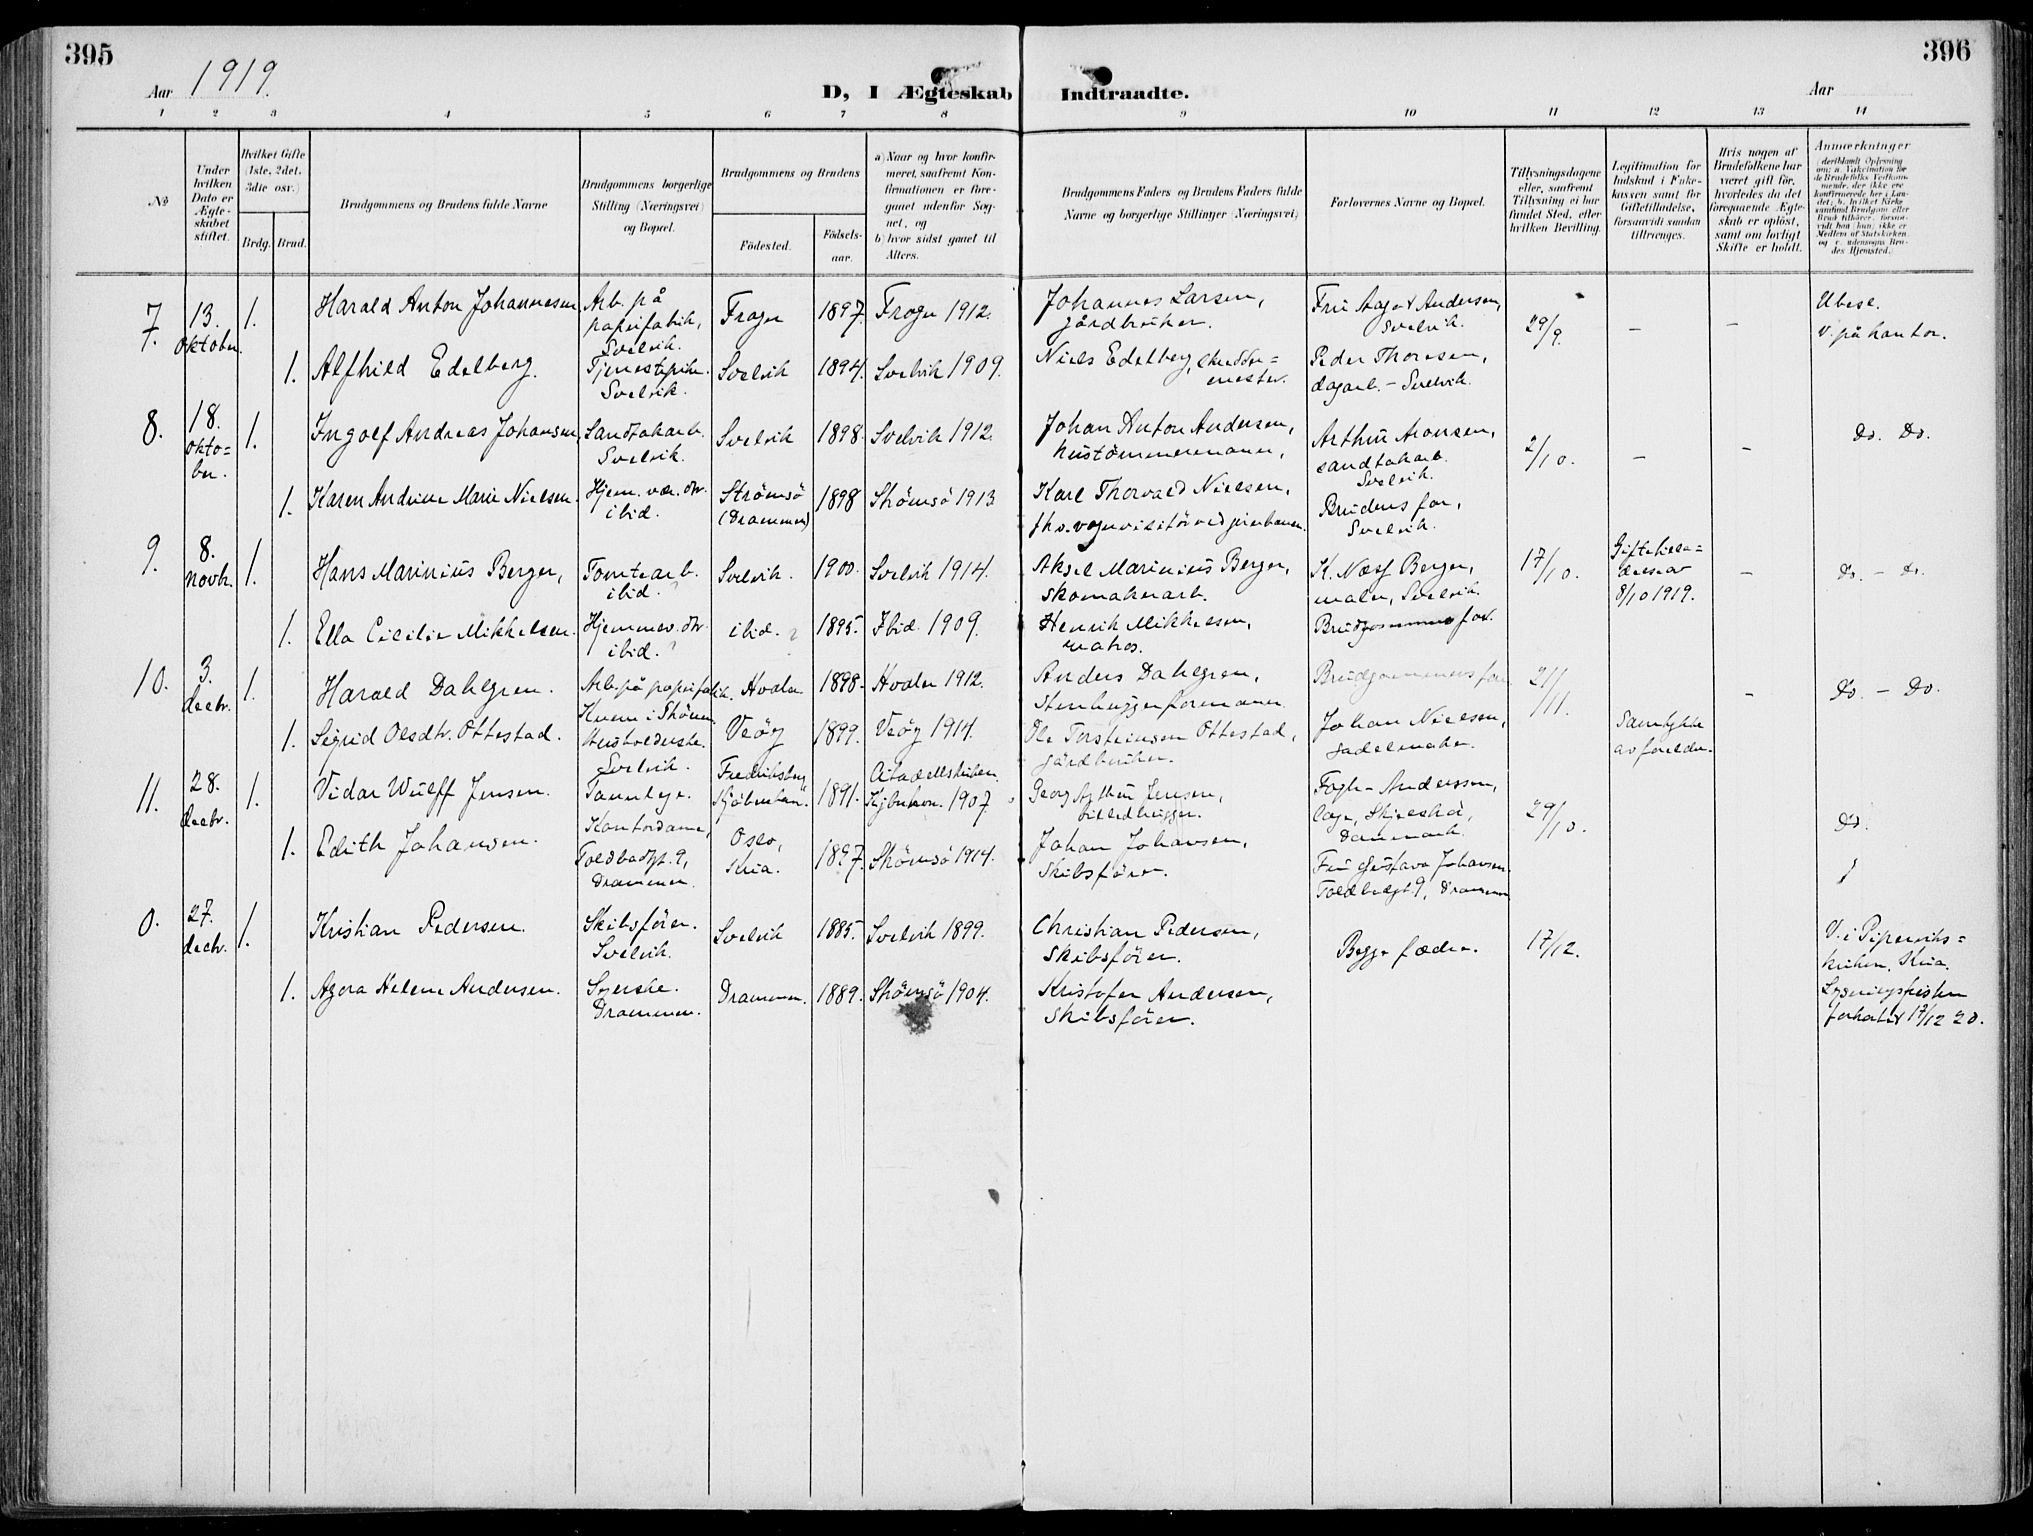 395
396
Aar 1919.
D, I Ægteskab Indtraadte.
Aar
1 2 3 4 5 6 7 8 9 10 11 12 13 14
No
Under hvilken Dato er Ægteskabet stiftet.
Hvilket Gifte (1ste, 2det, 3die osv.)
Brdg. Brud.
Brudgommens og Brudens fulde Navne
Brudgommens borgerlige Stilling (Næringsvei) og Bopæl.
Brudgommens og Brudens
Födested.
Födselsaar.
a) Naar og hvor konfirmeret, saafremt Konfirmationen er foregaaet udenfor Sognet, og
b) hvor sidst gaaet til Alters.
Brudgommens Faders og Brudens Faders fulde Navne og borgerlige Stillinger (Næringsvei)
Forlovernes Navne og Bopæl.
Tillysningsdagene eller, saafremt Tillysning ei har fundet Sted, efter hvilken Bevilling.
Legitimation for Indskud i Enkekassen samt for Giftetilladelse, forsaavidt saadan tiltrænges.
Hvis nogen af Brudefolkene har været gift för, hvorledes da det foregaaende Ægteskab er oplöst, samt om lovligt Skifte er holdt.
Anmærkninger
7. 13. oktober. 1. Harald Anton Johannesen Arb. på papirfabrik, Svelvik. Frogn 1897. Frogn 1912. Johannes Larsen, gårdbruker. Fru Aagot Andersen, Svelvik. 29/9. – – Ubesl. V. på kontor.
1. Alfhild Edelberg. Tjenestepike. Svelvik. Svelvik 1894. Svelvik 1909. Niels Edelberg, skreddermester. Peder Thoresen, dagarb. – Svelvik.
8. 18. oktober. 1. Ingolf Andreas Johansen, Sandtakarb. Svelvik. Svelvik 1898. Svelvik 1912. Johan Anton Andersen, hustömmermann, Arthur Aronsen, sandtakarb. Svelvik. 2/10. – – Do. Do.
1. Karen Andrine Marie Nielsen. Hjem. vær. dtr. ibid. Strömsö (Drammen) 1898 Strömsö 1913 Karl Thorvald Nielsen, fhv. vognvisitör ved jernbanen. Brudens far, Svelvik.
9. 8. novbr. 1. Hans Marinius Berger, Tomtearb. ibid. Svelvik. 1900. Svelvik 1914. Aksel Marinius Berger, skomakerarb. K. Næss Berger, maler, Svelvik. 17/10. av 8/10 1919. – Do. – Do.
1. Ella Cicilie Mikkelsen. Hjemmev. dtr. ibid. ? ibid. ? 1895. Ibid. 1909. Henrik Mikkelsen, matros. Brudgommens far.
10. 3. decbr. 1. Harald Dahlgren. Arb. på papirfabrik. Hvaler 1898. Hvaler 1912. Anders Dahlgren, Stenhuggerformann. Brudgommens far 21/11. – Do. – Do.
1. Sigrid Olsdtr. Ottestad. Husholderske. Svelvik. Veöy 1899. Veöy 1914. Ole Torsteinsen Ottestad, gårdbruker. Johan Nielsen, sadelmaker. Samtykke av forelder.
11. 28. decbr. 1. Vidar Wulff Jensen. Tannlege. Fredriksberg Kjöbenhavn. 1891. Citadellskirken. Kjöbnhvn. 1907. Georg Arthur Jensen, billedhugger. Fogh-Anderssen, Danmark. 29/10. Do.
1. Edith Johansen. Kontordame, Toldbodgt. 9, Drammen. Oslo, Kria. 1897. Strömsö 1914. Johan Johansen, Skibsförer. Fru Gustava Johansen Toldbodgt 9, Drammen
0. 27. decbr. 1. Kristian Pedersen. Skibsförer. Svelvik. Svelvik 1885. Svelvik 1899. Christian Pedersen, Skibsförer. Begge fædre. 17/12. V. i Piperviks-kirken, Kria.
1. Agora Helene Andersen. Syerske. Drammen. Drammen. 1889. Strömsö 1904. Kristofer Andersen, Skibsförer. Lysningsfristen forkortet 17/12 20.